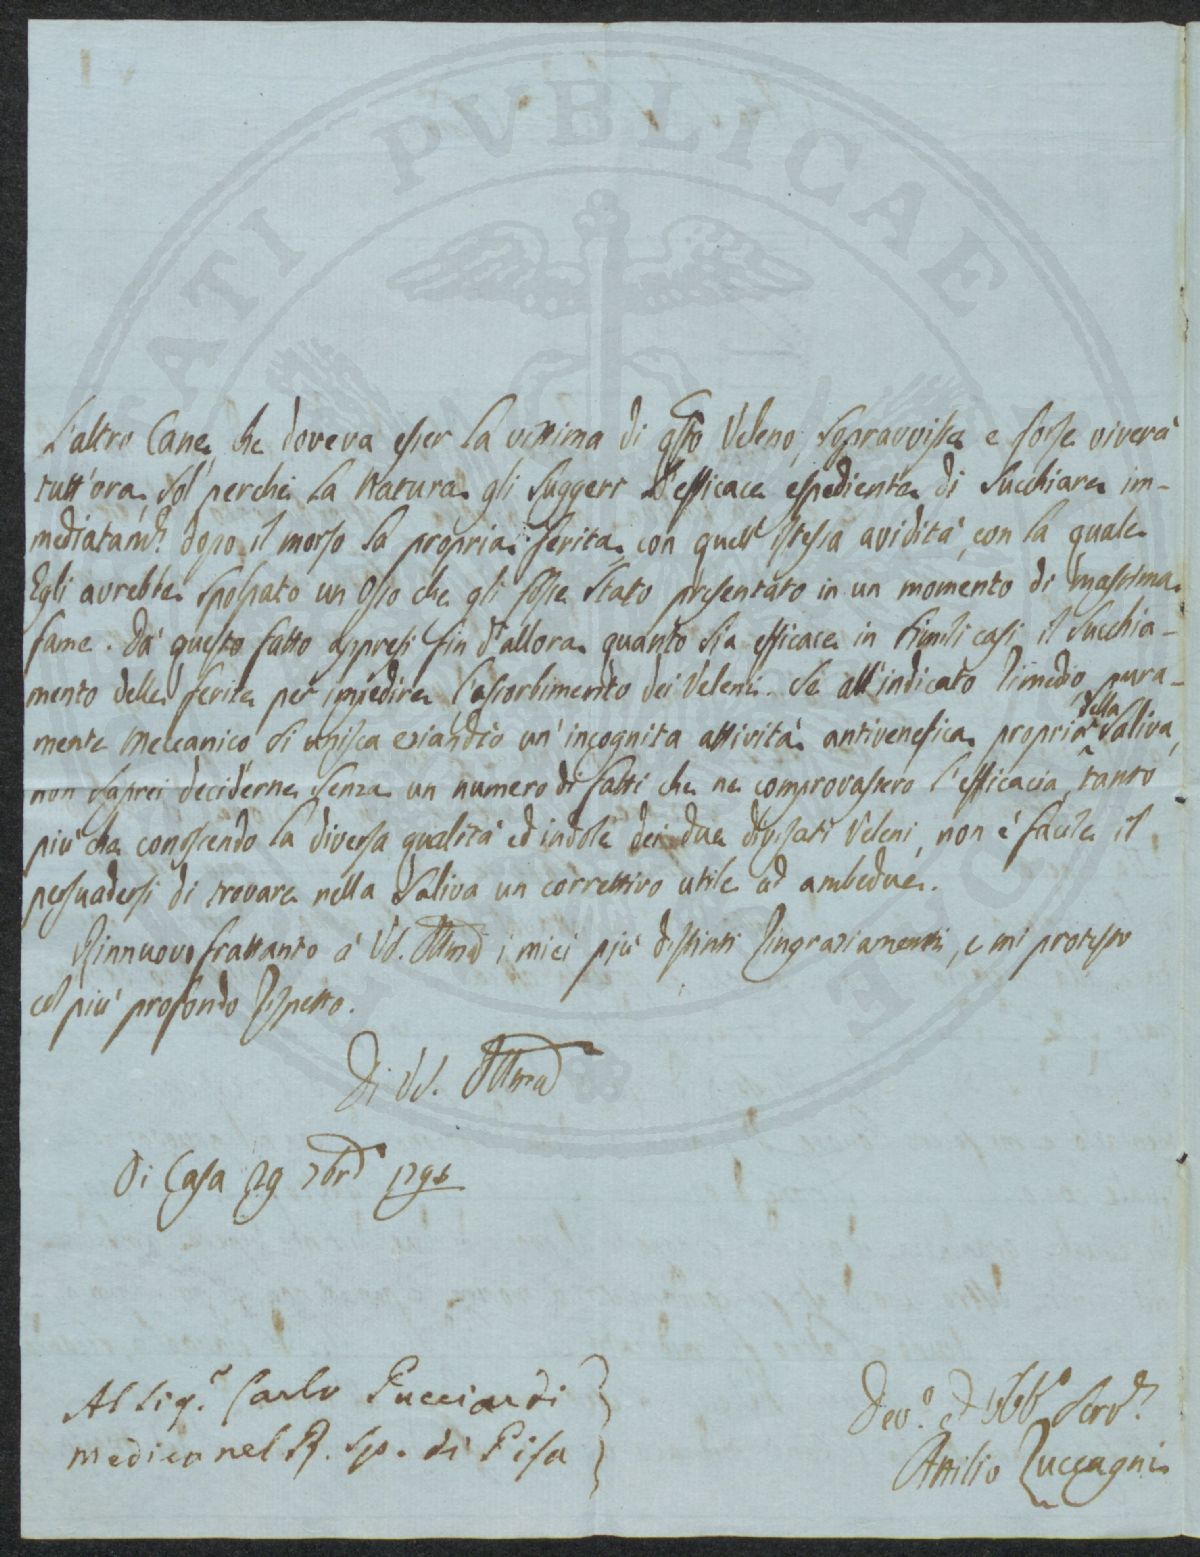 L'altro Cane, che doveva esser la vittima di qsto Veleno, sopravvisse e forse viverà
tutt'ora, sol perchè la Natura gli suggerì l'efficace espediente di succhiare im-
mediatamte dopo il morso la propria ferita, con quell'istessa avidità, con la quale
Egli avrebbe spolpato un Osso che gli fosse stato presentato in un momento di massima
fame. Da questo fatto appresi fin d'allora quanto sia efficace in simili casi il succhia-
mento delle ferite per impedire l'assorbimento dei Veleni. Se all'indicato rimedio pura-
mente Meccanico si unisca eziandio un'incognita attività antivenefica propria della Saliva,
non saprei deciderne senza un numero di fatti che ne comprovassero l'efficacia, tanto
più che conoscendo la diversa qualità ed indole dei due divisati Veleni, non è facile il
persuadersi di trovare nella Saliva un correttivo utile ad ambedue.
Rinnuovo frattanto a VS. Illma i miei più distinti Ringraziamenti, e mi protesto
col più profondo Rispetto.
Di VS. Illma
Di Casa 29 7bre
Al Sigr. Carlo Pucciardi
medico nel R. Sp. di Pisa
Devo. ed Obbo Servre
Attilio Zuccagni
PVBLICAE